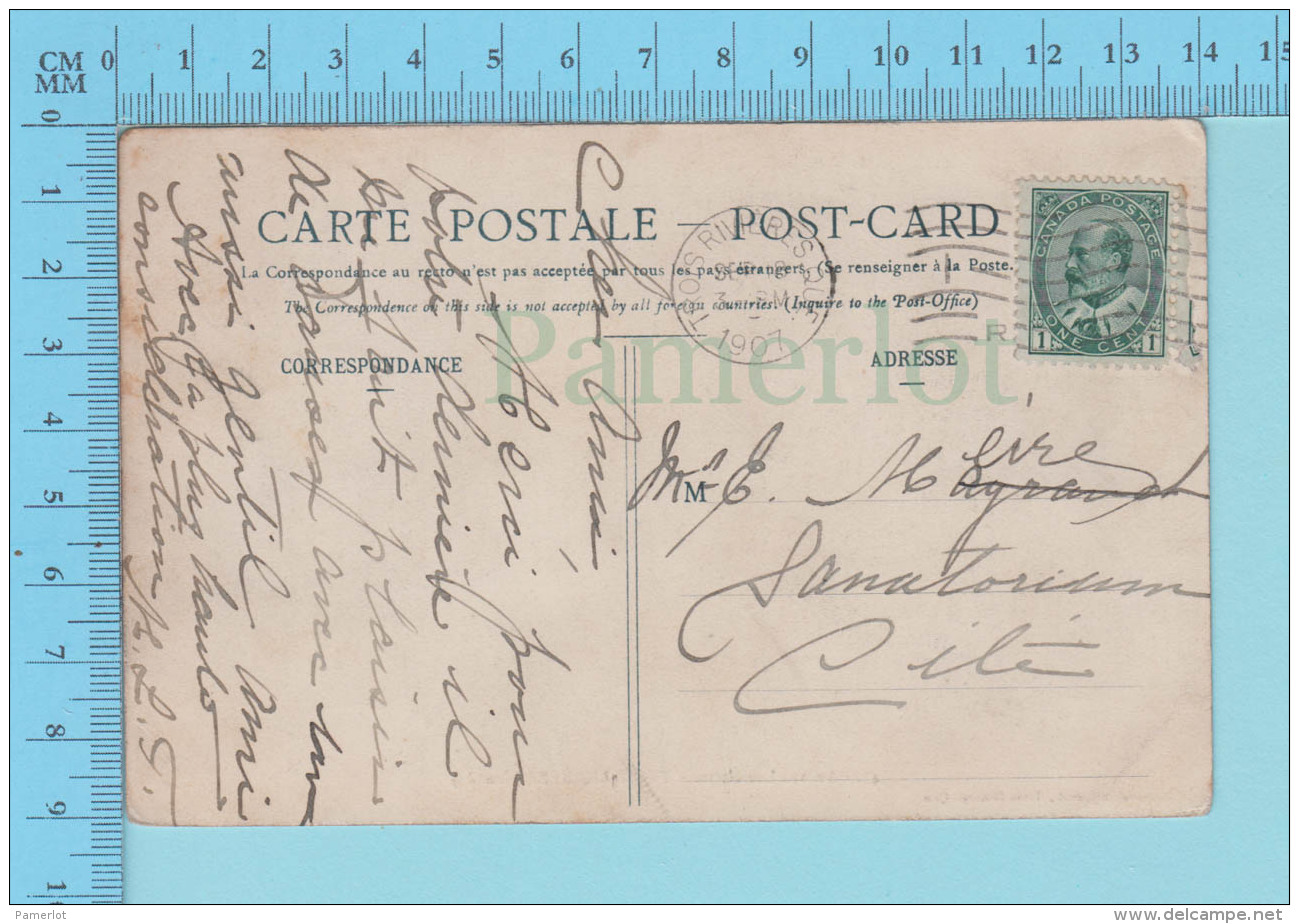 CM 0 1 2 3 4 5 6 7 8 9 10 11 12 13 14 15
MM
0 1 2 3 4 5 6 7 8 9 1
CARTE POSTALE — POST-CARD
La Correspondance au recto n'est pas acceptée par tous les pays étrangers. (Se renseigner à la Poste.
The Correspondence on this side is not accepted by all foreign countries. (Inquire to the Post-Office)
CORRESPONDANCE
ADRESSE
TROIS RIVIERES QUE
SEP
PM
1907
CANADA POSTAGE
1 ONE CENT 1
R
Pamerlot
Cher Ami
Merci pour
votre dernière il
me fait plaisir
de avec un
aussi gentil ami
Avec ma plus haute
considération
M
Mr E.
Sanatorium
Cité
© Pamerlot
http://www.delcampe.net